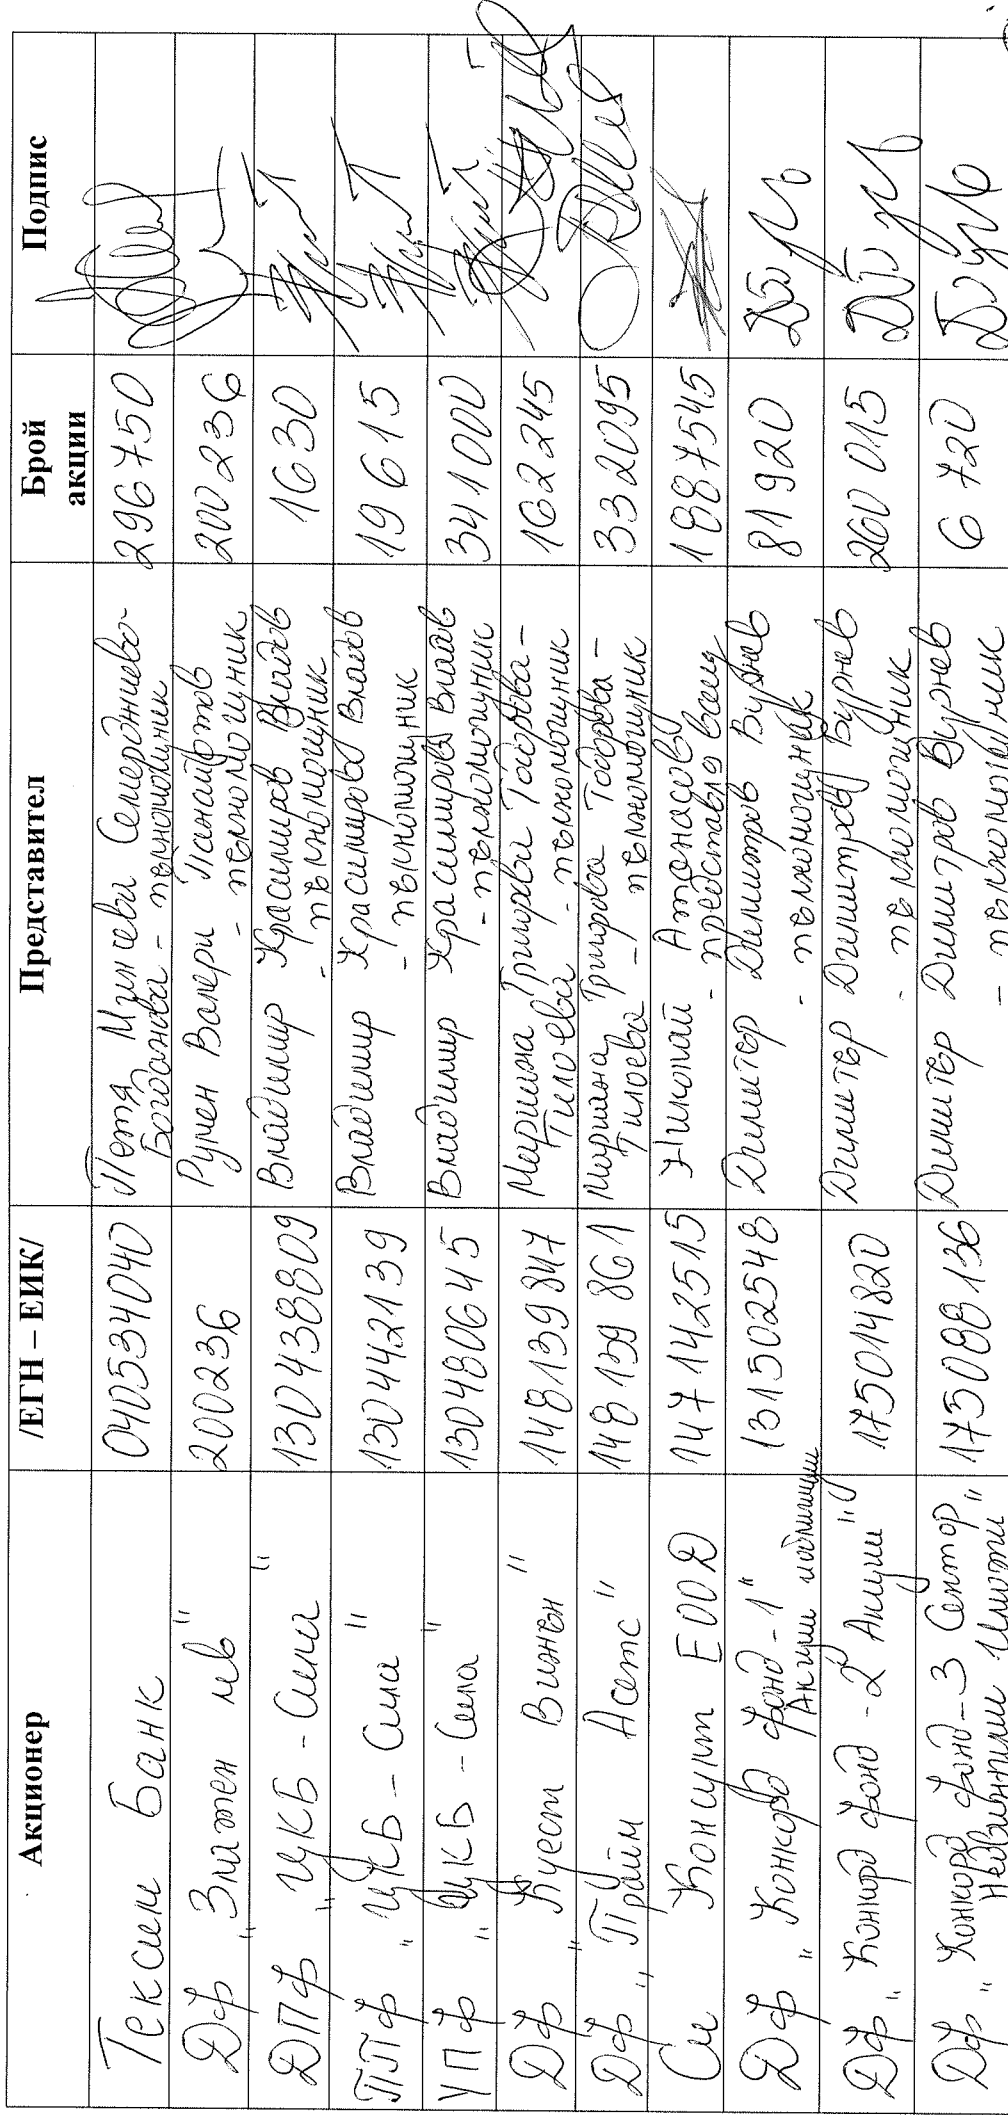 Акционер /ЕГН – ЕИК/ Представител Брой акции Подпис
Тексим Банк 040534040 Петя Минчева Семерджиева-
Богданова - пълномощник 296750
ДФ "Златен лев" 200236 Румен Валери Панайотов
- пълномощник 200236
ДПФ "ЦКБ - Сила" 130438809 Владимир Красимиров Владов
- пълномощник 1630
ППФ "ЦКБ - Сила" 130442139 Владимир Красимиров Владов
- пълномощник 19615
УПФ "ЦКБ - Сила" 130480645 Владимир Красимиров Владов
- пълномощник 341000
ДФ "Куест Вижън" 148139847 Мариана Григорова Тодорова-
Гилоева - пълномощник 162245
ДФ "Прайм Асетс" 148139861 Мариана Григорова Тодорова-
Гилоева - пълномощник 332095
Си Консулт ЕООД 147142515 Николай Атанасов
- представляващ 1887545
ДФ "Конкорд фонд-1"
Акции и облигации 131502548 Димитър Димитров Бурнев
- пълномощник 81920
ДФ "Конкорд фонд-2 Акции" 175014820 Димитър Димитров Бурнев
- пълномощник 260 015
ДФ "Конкорд фонд-3 Сектор
Недвижими Имоти" 175088136 Димитър Димитров Бурнев
- пълномощник 6 720